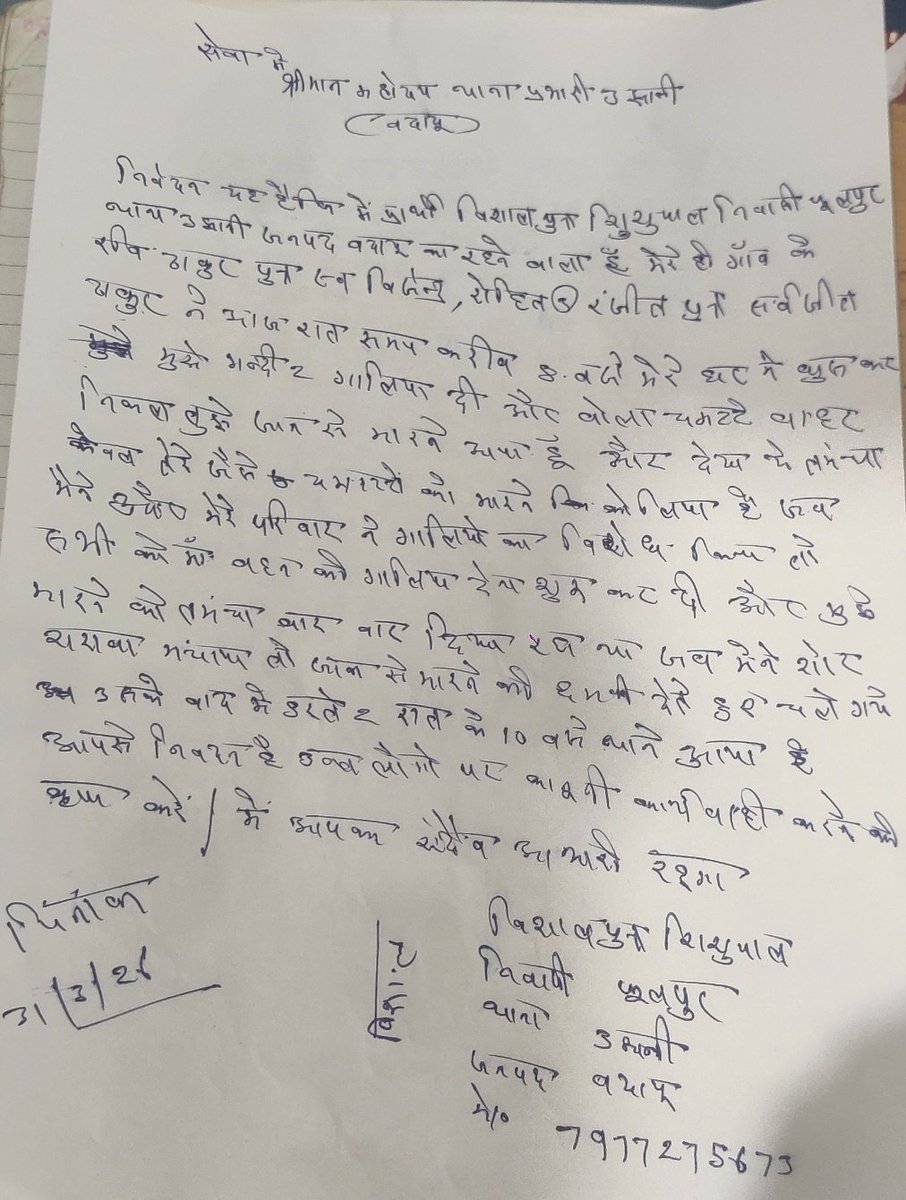 सेवा में
श्रीमान महोदय थाना प्रभारी उझानी
(बदायू)
निवेदन यह है कि मैं प्रार्थी विशाल पुत्र शिशुपाल निवासी फूलपुर
थाना उझानी जनपद बदायू का रहने वाला हूँ मेरे ही गाँव के
रवि ठाकुर पुत्र विजेन्द्र, रोहित रंजीत पुत्र सर्वजीत
ठाकुर ने आज रात समय करीब 8 बजे मेरे घर मे घुस कर
मुझे गन्दी 2 गालिया दी और बोला चमट्टे बाहर
निकल तुझे जान से मारने आया हूँ और देख ये तमंचा
केवल तेरे जैसे चमट्टो को मारने को लिया है जब
मैने और मेरे परिवार ने गालियो का विरोध किया तो
सभी को माँ बहन की गालिया देना शुरू कर दी और मुझे
मारने को तमंचा बार बार दिखा रहा था जब मैने शोर
शराबा मचाया तो जान से मारने की धमकी देते हुए चले गये
उसके बाद मे डरते 2 रात के 10 बजे थाने आया हूँ
आपसे निवेदन है उन्ह लोगो पर कानूनी कार्यवाही करने की
कृपा करें / मैं आपका सदैव आभारी रहूगा
दिनांक
31/3/26
विशाल पुत्र शिशुपाल
निवासी फूलपुर
थाना उझानी
जनपद बदायू
मो० 7977275673